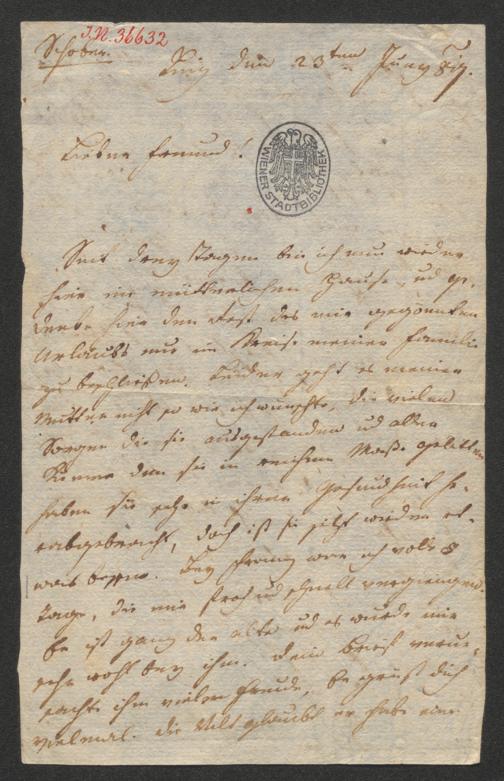 J.N. 36632
Schober.
den 23ten Juny
Lieber Freund!
WIENER STADTBIBLIOTHEK
Seit drey Tagen bin ich nun wieder
hier im mütterlichen Hause, und ge-
denke hier den Rest des mir gegönnten
Urlaubs nur im Kreise meiner Familie
zu beschließen. Leider geht es meiner
Mutter nicht so wie ich wünschte, die vielen
Sorgen die sie ausgestanden und aller
Kummer den sie in reichem Maße gelitten
haben sie sehr in ihrer Gesundheit he-
rabgebracht, doch ist sie jetzt wieder et-
was besser. Bey Franz war ich volle 8
Tage, die mir froh und schnell vergiengen.
Er ist ganz der alte und es wurde mir
sehr wohl bey ihm. Dein Brief verur-
sachte ihm vielen Freude, Er grüßt dich
vielmal. Die Welt glaubt er habe eine